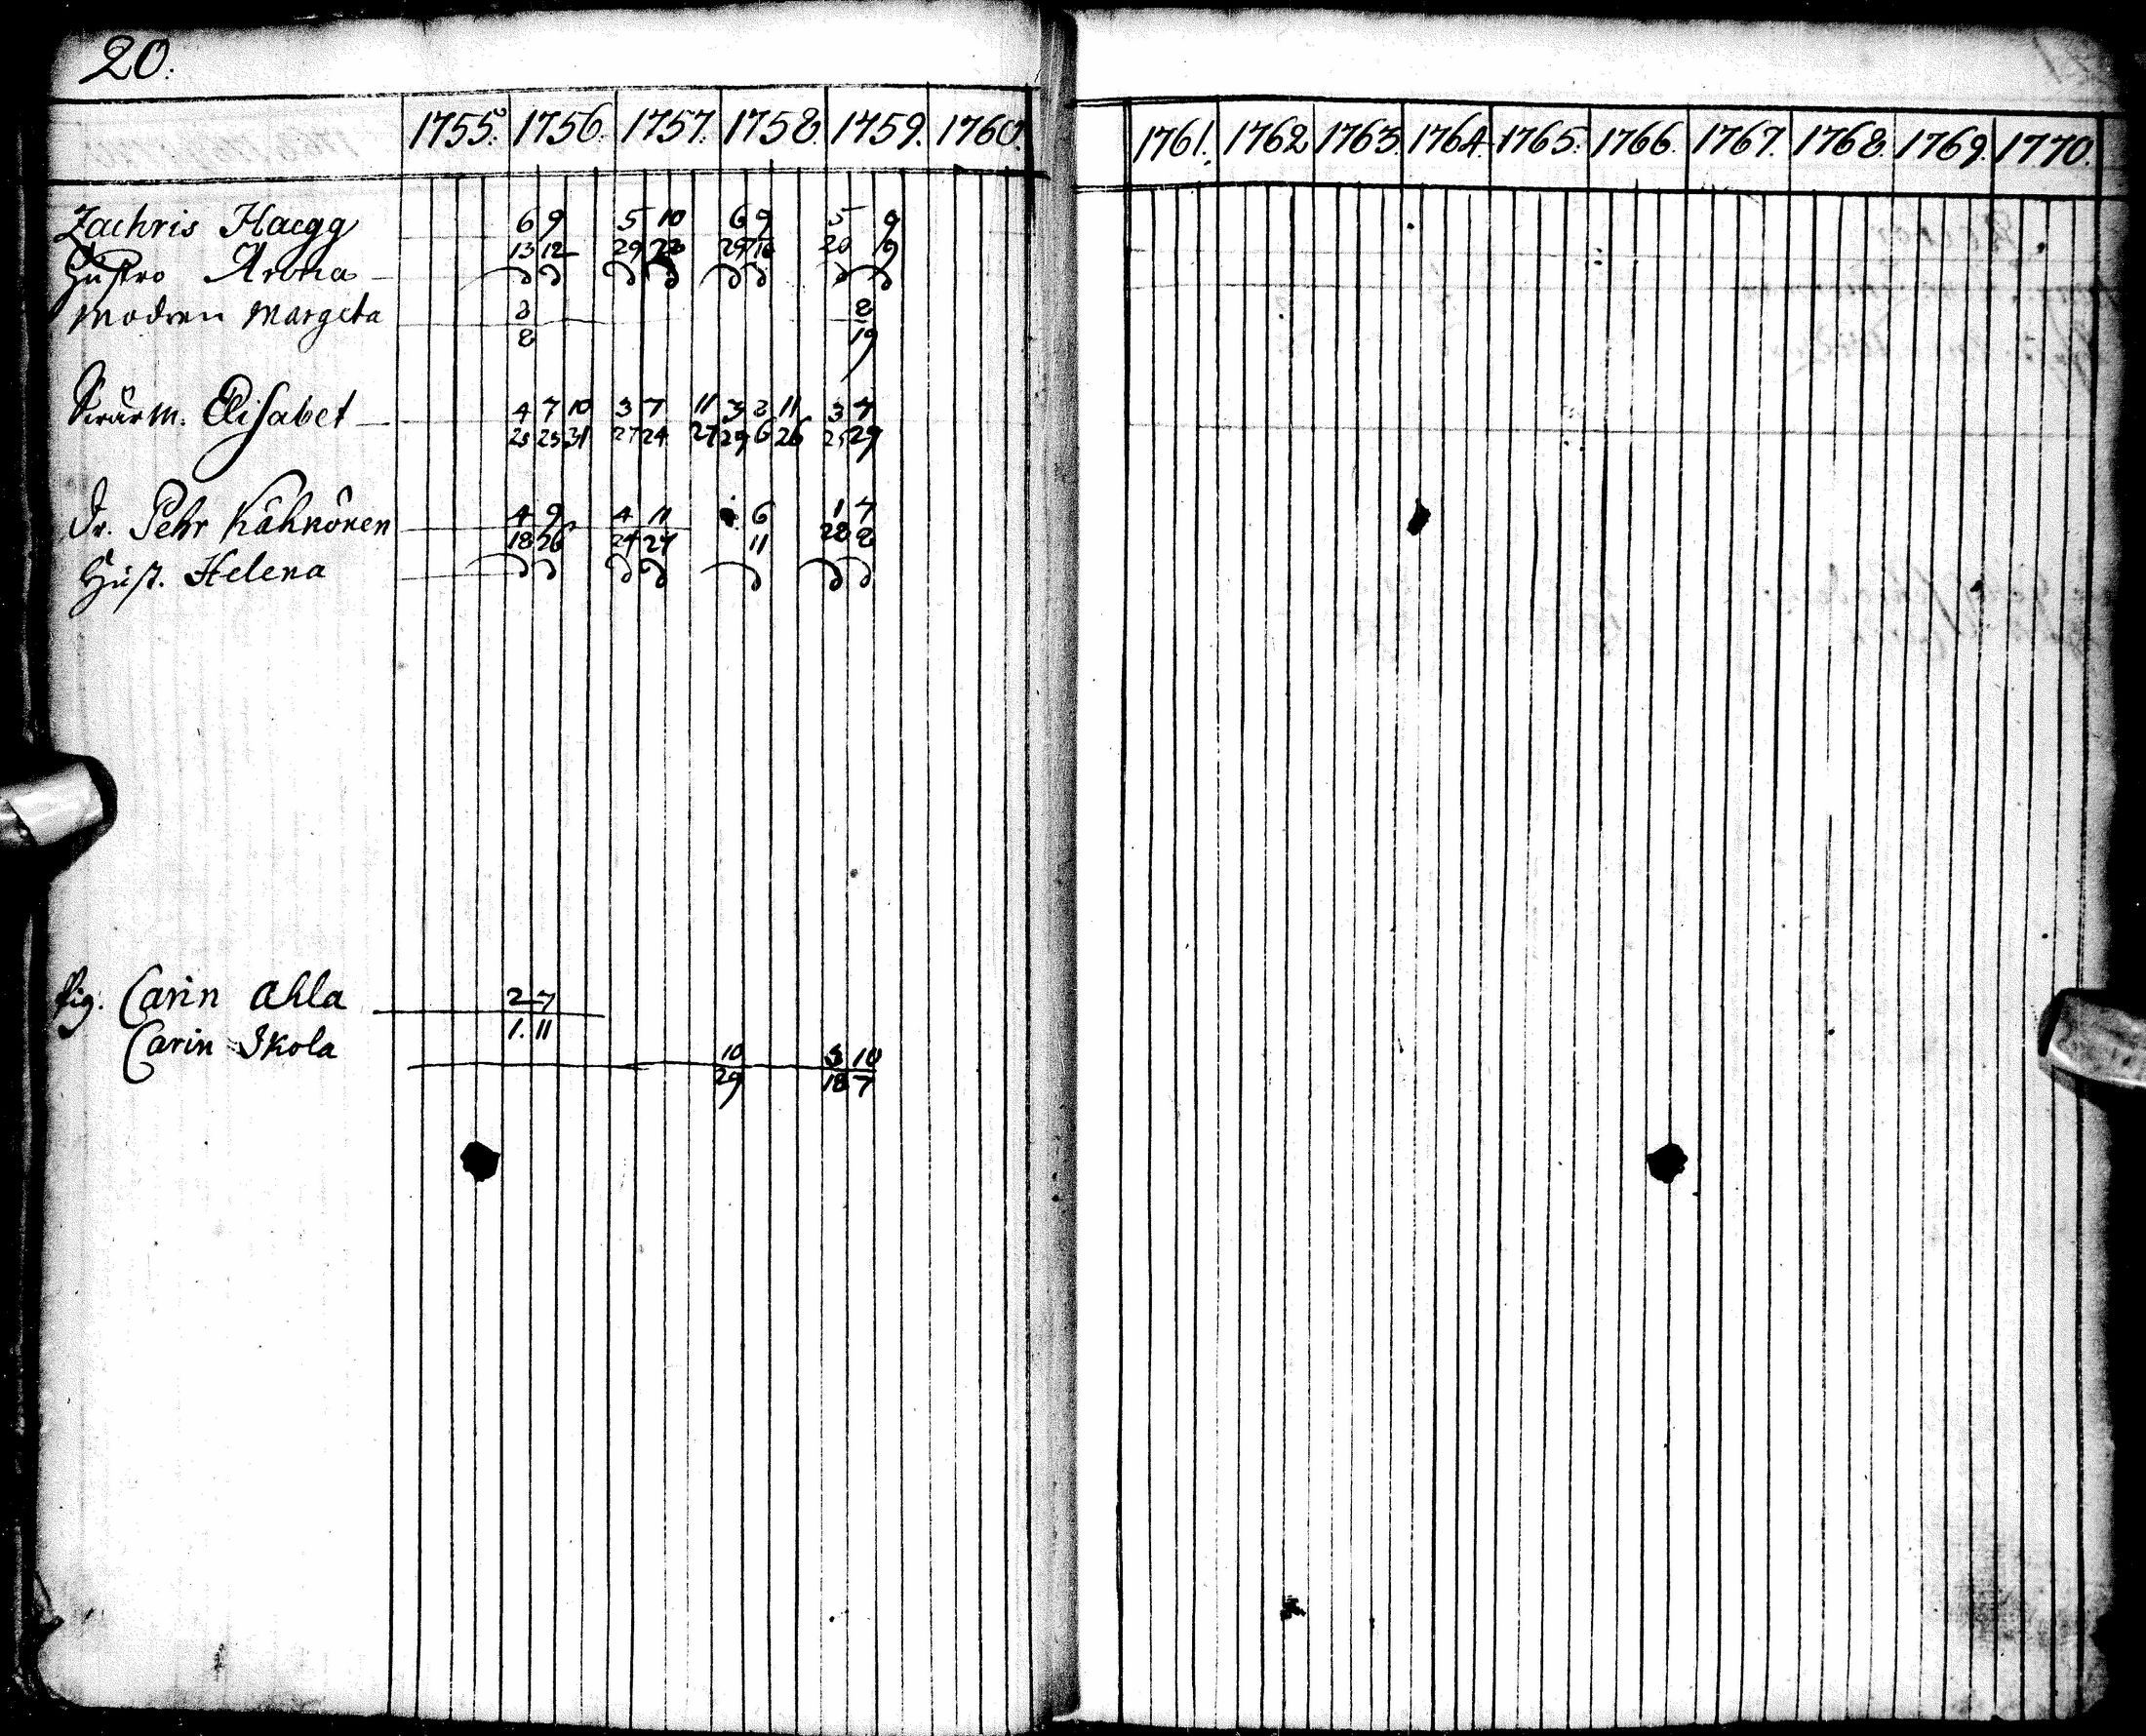 20.
1755. 1756. 1757. 1758. 1759. 1760. 1761. 1762 1763. 1764. 1765. 1766. 1767. 1768. 1769. 1770.
Zachris Haegg 6 9 5 10 6 9 5 9
13 12 29 23 29 16 20 9
Hustro Anna
Modren Margeta 8 8
8 19
Swärm. Elisabet 4 7 10 3 7 11 3 2 11 3 7
23 25 31 27 24 27 29 6 26 25 29
Dr. Pehr Kähkönen 4 9 4 11 6 1 7
18 26 24 27 11 28 8
Hust. Helena
Pig. Carin Ahla 2 7
1. 11
Carin Skola 10 3 10
29 18 7